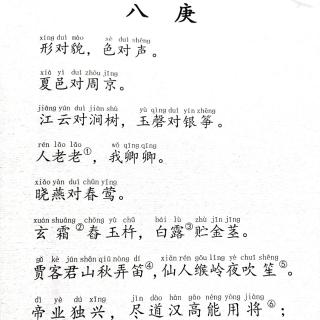 八 庚
xíng duì mào sè duì shēng
形对貌，色对声。
xià yì duì zhōu jīng
夏邑对周京。
jiāng yún duì jiàn shù yù qìng duì yín zhēng
江云对涧树，玉磬对银筝。
rén lǎo lǎo wǒ qīng qīng
人老老①，我卿卿。
xiǎo yàn duì chūn yīng
晓燕对春莺。
xuán shuāng chōng yù chǔ bái lù zhù jīn jīng
玄霜②舂玉杵，白露③贮金茎。
gǔ kè jūn shān qiū nòng dí xiān rén gōu lǐng yè chuī shēng
贾客君山秋弄笛④，仙人缑岭夜吹笙⑤。
dì yè dú xīng jìn dào hàn gāo néng yòng jiàng
帝业独兴，尽道汉高能用将⑥；